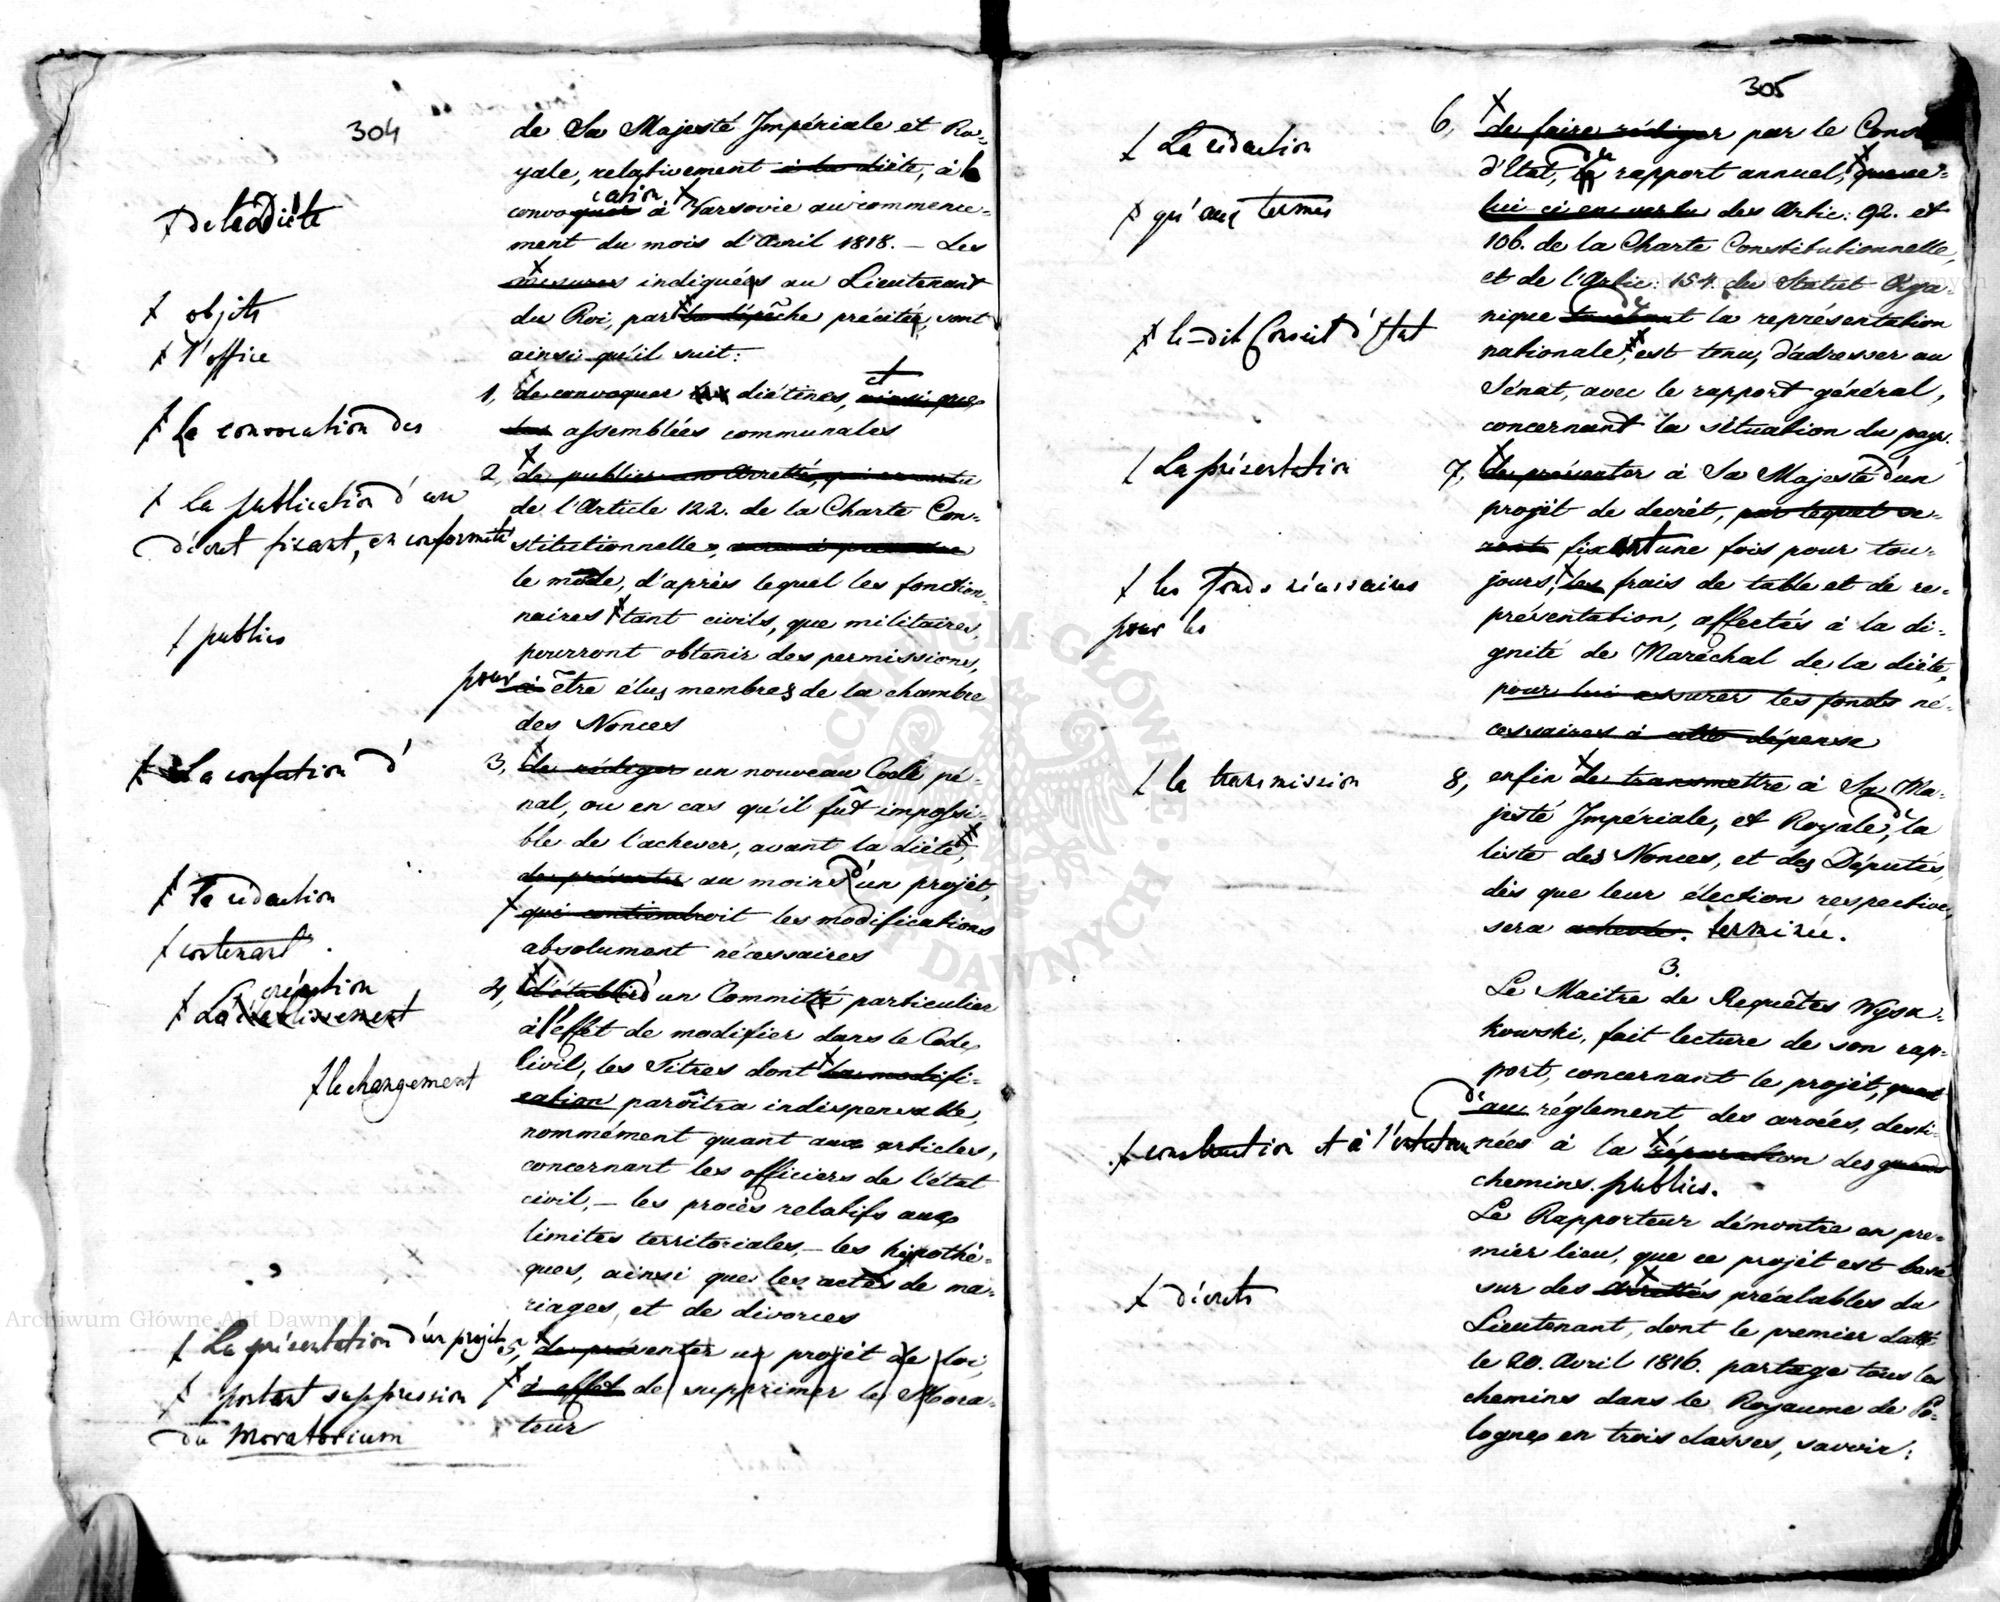 304
de Sa Majesté Impériale et Ro-
yale, relativement à la diète, à la
cation
convoquer à Varsovie au commence-
ment du mois d'Avril 1818. — Les
mesures indiquées au Lieutenant
du Roi, par la dépêche précitée, sont
ainsi qu'il suit:
et
1, de convoquer les diétines, ainsi que
les assemblées communales
2, de publier un Arretté, qui en vertu
de l'Article 122. de la Charte Con-
stitutionnelle,
le mode, d'après lequel les fonction-
naires tant civils, que militaires,
pourront obtenir des permissions,
pour à être élus membres de la chambre
des Nonces
3, de rédiger un nouveau Code pé-
nal, ou en cas qu'il fût impossi-
ble de l'achever, avant la diète,
de présenter au moins d'un projet,
qui contiendroit les modifications
absolument nécessaires
4, d'établir d'un Committé particulier
à l'effet de modifier dans le Code
Civil, les Titres dont la modifi-
cation paroîtra indispensable,
nommément quant aux articles,
concernant les officiers de l'état
civil, — les procès relatifs aux
limites territoriales, — les hypothè-
ques, ainsi que les actes de ma-
riages, et de divorces
5, de présenter un projet de loi,
à effet de supprimer le Mora-
teur
de la Diète
objets
l'office
la convocation des
la publication d'un
décret fixant, en conformité
publics
La confection d'
la rédaction
contenant
création
L'établissement
le changement
La présentation d'un projet
portant suppression
du Moratorium
305
6, de faire rédiger par le Conseil
d'Etat, du rapport annuel, que ce-
lui-ci en vertu des Artic: 92. et
106. de la Charte Constitutionnelle,
et de l'Artic: 154. du Statut Orga-
nique touchant la représentation
nationale, est tenu, d'adresser au
Sénat, avec le rapport général,
concernant la situation du pays.
7, de présenter à Sa Majesté d'un
projet de decrét, par lequel se-
ront fixant une fois pour tou-
jours, les frais de table et de re-
présentation, affectés à la di-
gnité de Maréchal de la diète,
pour lui assurer les fonds né-
cessaires à cette dépense
8, enfin de transmettre à Sa Ma-
jesté Impériale, et Royale, de la
liste des Nonces, et des Députés,
dès que leur élection respective,
sera achevée. terminée.
3.
Le Maitre de Requêtes Wyszo-
kowski, fait lecture de son rap-
port, concernant le projet, quant
de
au réglement des corvées, desti-
nées à la réparation des grands
chemins publics.
Le Rapporteur démontre en pre-
mier lieu, que ce projet est basé
sur des Arrettés préalables du
Lieutenant, dont le premier datté
le 20. Avril 1816. partage tous les
chemins dans le Royaume de Po-
logne en trois classes, savoir:
La rédaction
qu'aux termes
le-dit Conseil d'Etat
La présentation
les fonds nécessaires
pour les
la transmission
construction et à l'entretien
décrets
Archiwum Główne Akt Dawnych